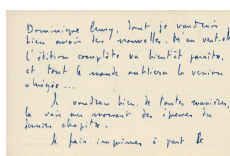 Dominique Cuny, dont je voudrais
bien avoir des nouvelles. M'en veut-il
l'édition complète va bientôt paraître,
et tout le monde oubliera la version
abrégée...
Je voudrais bien, de toutes manières,
la voir au moment des épreuves du
dernier chapitre.
Je fais imprimer à part